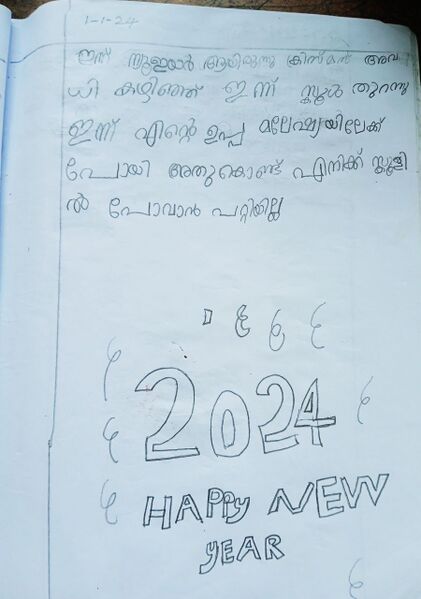 1-1-24
ഇന്ന് ന്യൂഇയർ ആയിരുന്നു ക്രിസ്മസ് അവ
ധി കഴിഞ്ഞ് ഇന്ന് സ്കൂൾ തുറന്നു
ഇന്ന് എന്റെ ഉപ്പ മലേഷ്യയിലേക്ക്
പോയി അതുകൊണ്ട് എനിക്ക് സ്കൂളി
ൽ പോവാൻ പറ്റിയില്ല
2024
HAPPY NEW
YEAR